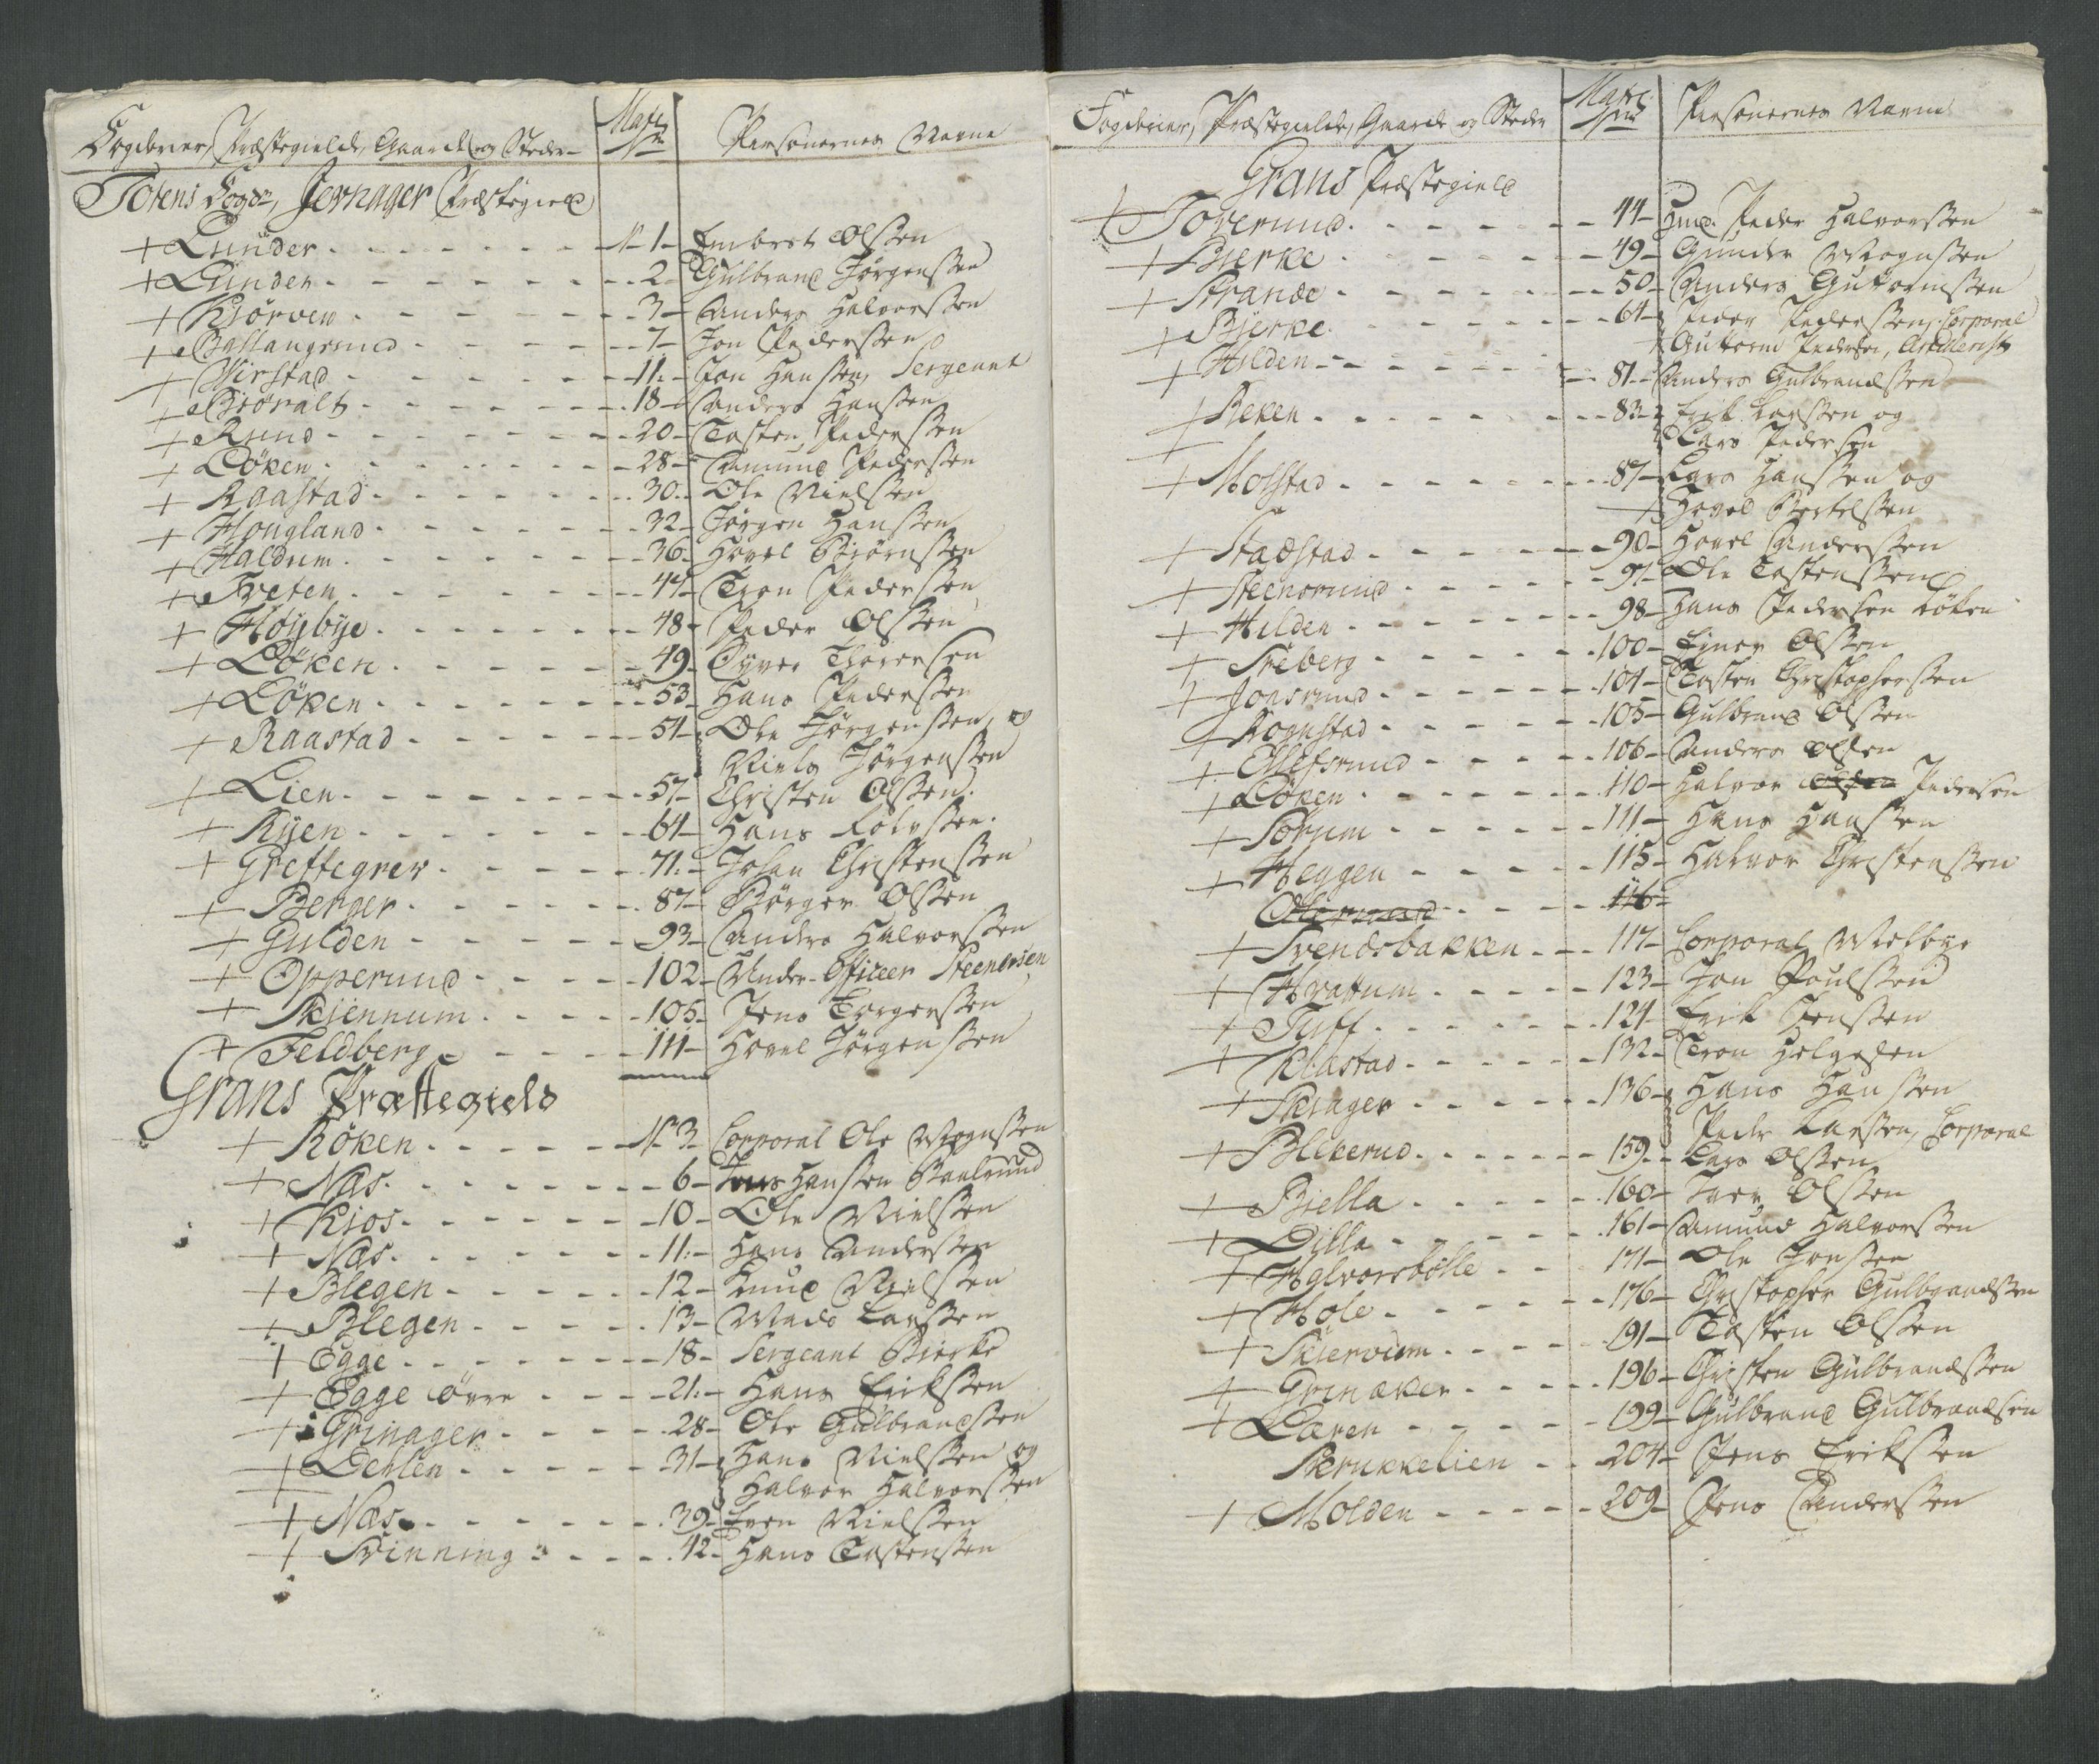 Fogderier, Præstegield, Gaarde og Steder Matr No Personernes Navne
Totens Fogd, Jevnager Præstegield
+ Lunder - N 1 - Embret Olsen
+ Lunder - 2 - Gulbrand Jørgensen
+ Kiørven - 3 - Anders Halvorsen
+ Ballangrud - 7 - Jon Pedersen
+ Virstad - 11 - Jon Hansen, Sergeant
+ Biøralt - 18 - Anders Hansen
+ Ruud - 20 - Tosten Pedersen
+ Løken - 28 - Amund Pedersen
+ Raastad - 30 - Ole Nielsen
+ Hougland - 32 - Jørgen Hansen
+ Haldum - 36 - Hovel Biørnsen
+ Tveten - 44 - Tron Pedersen
+ Høybye - 48 - Peder Olsen
+ Løken - 49 - Thoresen
+ Løken - 53 - Hans Pedersen
+ Raastad - 54 - Ole Jørgensen og
Niels Jørgensen
+ Lien - 57 - Christen Olsen
+ Ryen - 64 - Hans
+ Grettegrev - 71 - Johan Christensen
+ Berger - 87 - Børger Olsen
+ Gulden - 93 - Anders Halvorsen
+ Opperuud - 102 - Under-Officeer Steenersen
+ Skiennum - 105 - Jens Torgersen
+ Feldberg - 111 - Hovel Jørgensen
Grans Præstegield
+ Røken - N 3 - Corporal Ole Mognsen
+ Næs - 6 - Hansen
+ Kios - 10 - Ole Nielsen
+ Næs - 11 - Hans Andersen
+ Blegen - 12 - Knud Nielsen
+ Blegen - 13 - Mads Larsen
+ Egge - 18 - Sergeant Bierke
+ Egge øvre - 21 - Hans Eriksen
+ Grinager - 28 - Ole Gulbrandsen
+ Dehlen - 31 - Hans Nielsen og
+ Halvor Halvorsen
+ Næs - 39 - Iver Nielsen
+ Svinning - 42 - Hans Tostensen
Fogderier, Præstegield, Gaarde og Steder Matr No Personernes Navne
Grans Præstegield
+ Toverud - 44 - Peder Halvorsen
+ Bierke - 49 - Gunder Mognsen
+ Strande - 50 - Anders Gutormsen
+ Bierke - 64 - Peder Pedersen, Corporal
+ Gutorm Pedersen, Artillerist
+ Hilden - 81 - Anders Gulbrandsen
+ Reken - 83 - Erik Larsen og
+ Lars Pedersen
+ Molstad - 87 - Lars Hansen og
+ Hovel Bertelsen
+ Stadstad - 90 - Hovel Andersen
+ Steensrud - 91 - Ole Tostensen
+ Hilden - 98 - Hans Pedersen Løken
+ Treberg - 100 - Einer Olsen
+ Jonsrud - 104 - Tosten Christophersen
+ Rognstad - 105 - Gulbrand Olsen
+ Ellefsrud - 106 - Anders Olsen
+ Løken - 110 - Halvor Olsen Pedersen
+ Sørum - 111 - Hans Hansen
+ Heggen - 115 - Halvor Christensen
Olerud - 116 -
+ Svendsbakken - 117 - Corporal Melbye
+ Hvattum - 123 - Jon Poulsen
+ Tuff - 124 - Erik Jensen
+ Klæstad - 132 - Tron Helgesen
+ Skiager - 136 - Hans Hansen
Peder Larsen, Corporal
+ Blekerud - 159 - Lars Olsen
+ Biella - 160 - Iver Olsen
+ Dilla - 161 - Amund Halvorsen
+ Halvorsbølle - 171 - Ole Jonsen
+ Hole - 176 - Christopher Gulbrandsen
+ Skiervum - 191 - Tosten Olsen
+ Grinaker - 196 - Christen Gulbrandsen
+ Læren - 199 - Gulbrand Gulbrandsen
Skrukkelien - 204 - Jens Eriksen
+ Molden - 209 - Jens Andersen